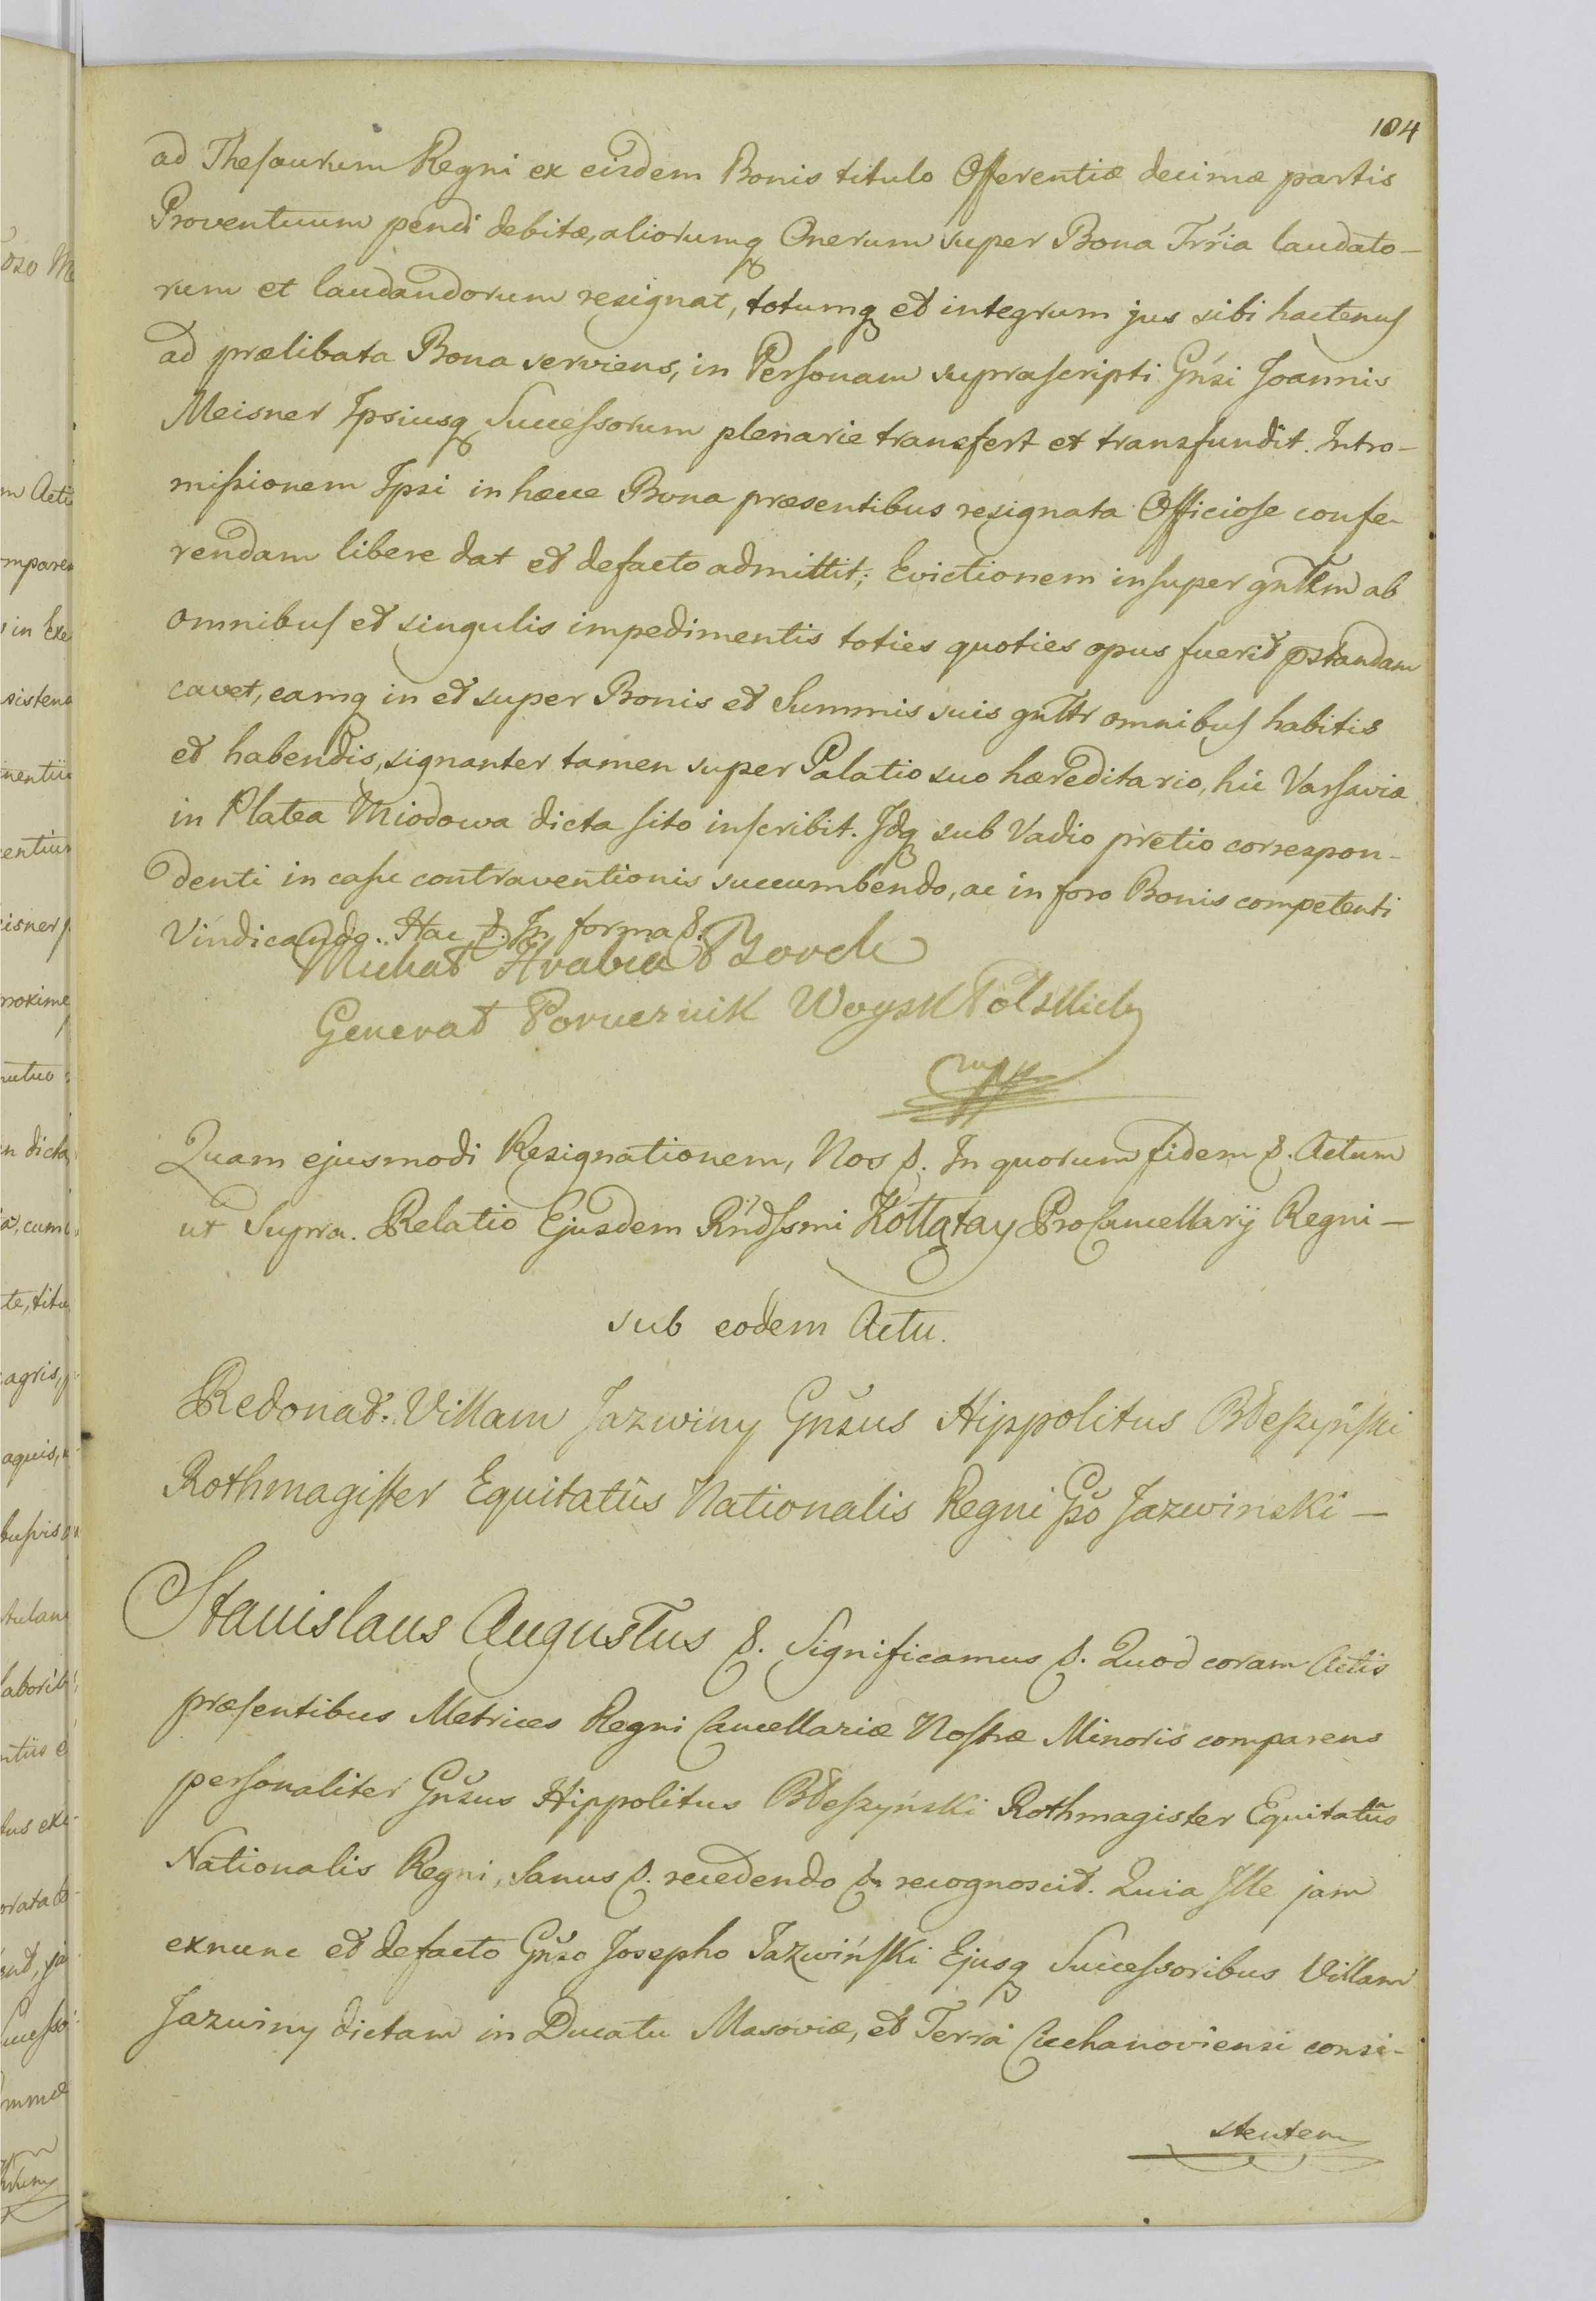 104
ad Thesaurum Regni ex eisdem Bonis titulo Offerentiæ decimæ partis
Proventuum pendi debitæ, aliorumq Onerum super Bona Trria laudato-
rum et laudandorum resignat, totumq et integrum jus sibi hactenus
ad prælibata Bona serviens, in Personam suprascripti Gnsi Joannis
Meisner Ipsiusq Successorum plenarie transfert et transfundit. Intro-
missionem Ipsi in hæcce Bona præsentibus resignata Officiose confe-
rendam libere dat et defacto admittit; Evictionem insuper gnlem ab
omnibus et singulis impedimentis toties quoties opus fuerit pstandam
cavet, eamq in et super Bonis et Summis suis gnltr omnibus habitis
et habendis, signanter tamen super Palatio suo hæreditario, hic Varsaviæ
in Platea Miodowa dicta sito inscribit. Idq sub Vadio pretio correspon-
denti in casu contraventionis succumbendo, ac in foro Bonis competenti
Vindicando. Hac &. In forma &.
Michał Hrabia Borch
Generał Porucznik Woysk Polskich
mpp
Quam ejusmodi Resignationem, Nos &. In quorum fidem &. Actum
ut Supra. Relatio Ejusdem Rndssmi Kołłątay ProCancellarij Regni —
sub eodem Actu.
Redonat. Villam Jazwiny Gnsus Hippolitus Błeszyński
Rothmagister Equitatûs Nationalis Regni Gso Jazwinski —
Stanislaus Augustus &. Significamus &. Quod coram Actis
præsentibus Metrices Regni Cancellariæ Nostræ Minoris comparens
personaliter Gnsus Hippolitus Błeszyński Rothmagister Equitatûs
Nationalis Regni, Sanus &. recedendo & recognoscit. Quia Ille jam
exnunc et defacto Gnso Josepho Jazwiński Ejusq Successoribus Villam
Jazwiny dictam in Ducatu Masoviæ, et Terrâ Ciechanoviensi consi-
stentem